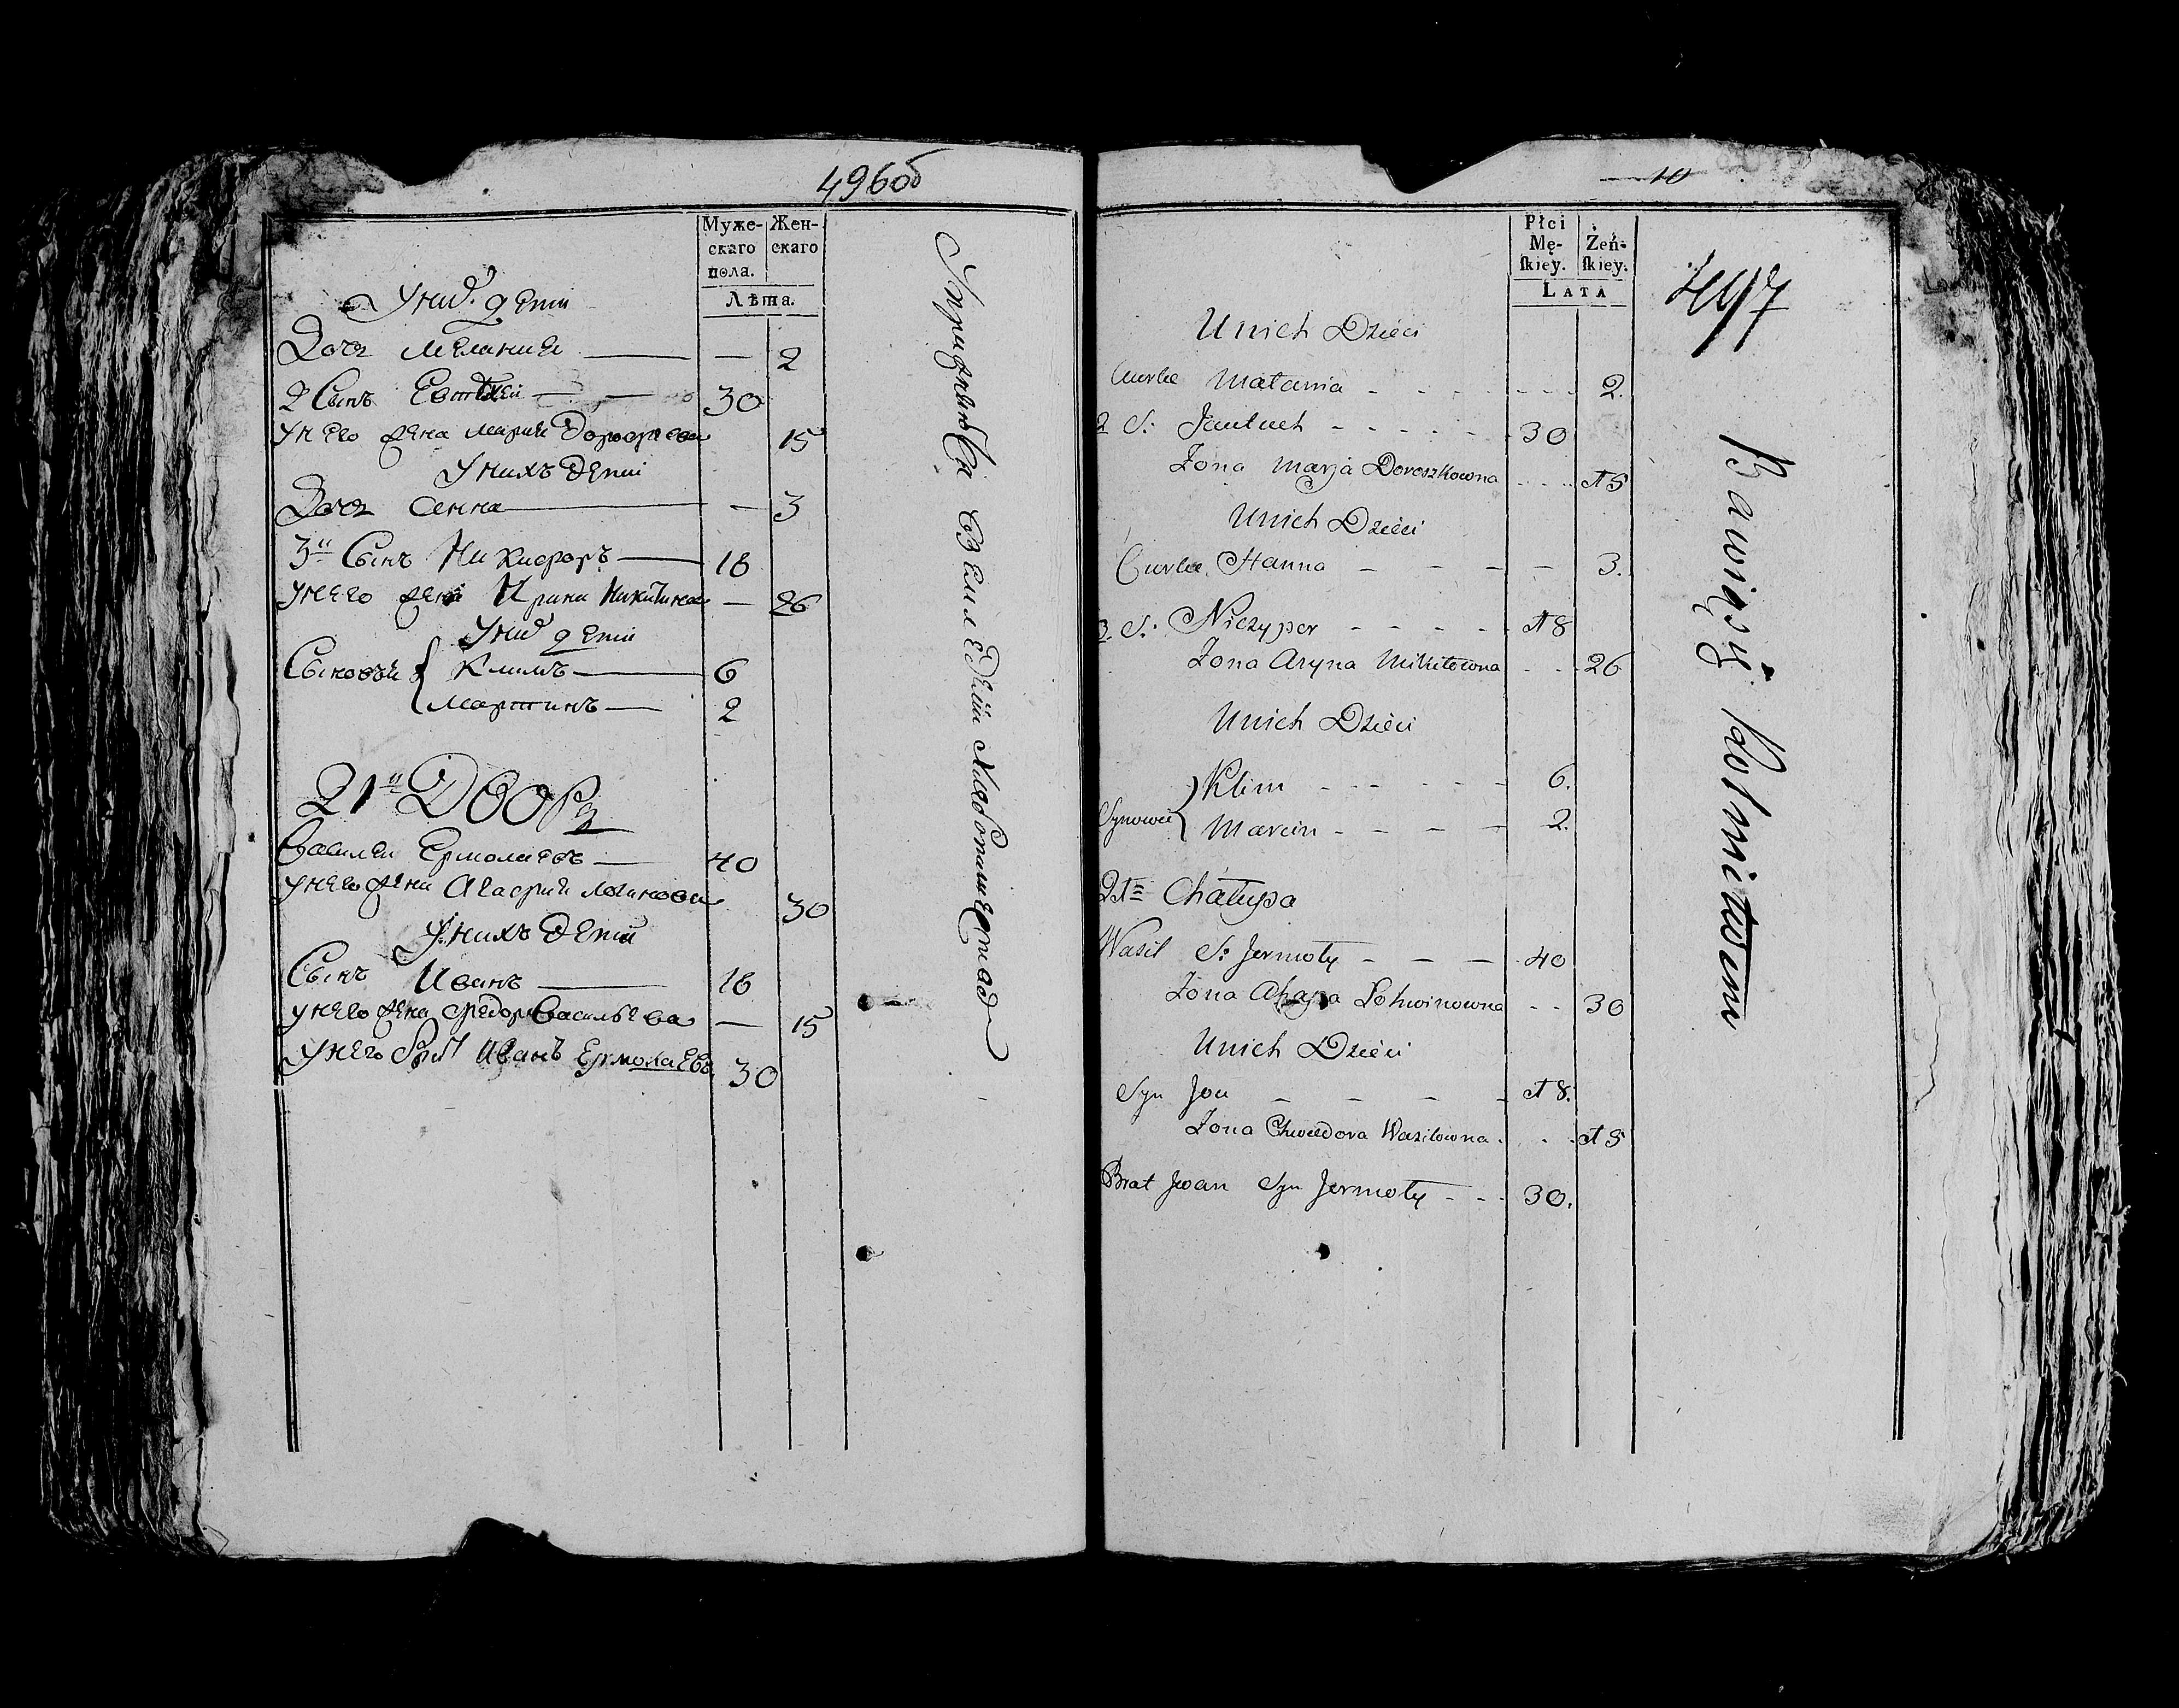 496об
Муже-
скаго
пола.
Жен-
скаго
Лѣта.
У них дети
Дочь Мелания — — 2
2 Сынъ Евтихей — 30
у него жена Мария Дорофеева 15
У нихъ дети
Дочь Ганна — — 3
3й Сынъ Никифоръ — 18
у него жена Ирина Никитина — 26
У них дети
Сыновьи { Климъ — 6
Мартинъ — 2
21й Дворъ
Василеи Ермолаевъ — 40
у него жена Агафия Логинова 30
У нихъ дети
Сынъ Иванъ — 18
у него жена Федора Васильева — 15
У него брат Иванъ Ермолаевъ 30
10
Płci
Mę-
skiey.
Żeń-
skiey.
LATA
497
Unich Dzieci
Curka Małania - - - - - - - 2.
2 S: Jautuch - - - - - - 30
Zona Marja Doroszkowna - - - 15
Unich Dzieci
Curka Hanna — — — — 3.
3. S: Niczypor - - - - - 18
Zona Aryna Mikitowna - - - 26
Unich Dzieci
Synowie { Klim - - - - - 6.
Marcin - - - - 2.
21= Chałupa
Wasil S: Jermoły - — — 40
Zona Ahapa Łohwinowna - - 30
Unich Dzieci
Syn Jan — — — - 18.
Zona Chwedora Wasilowna - - - 15
Brat Jwan Syn Jermoły - - - 30.